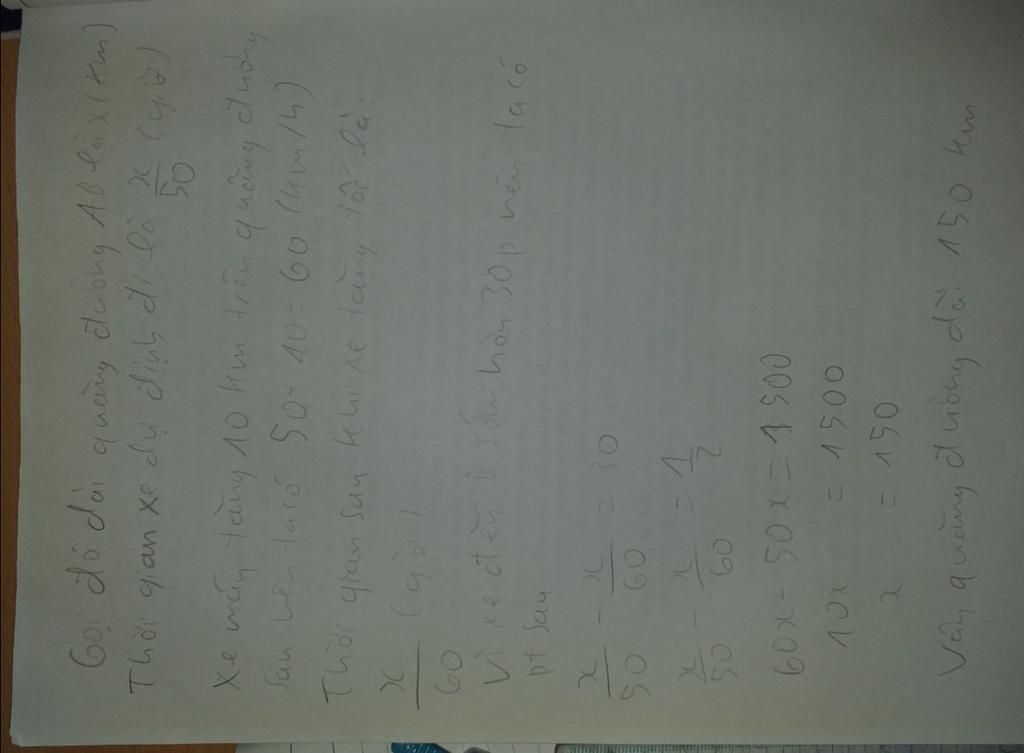 Gọi độ dài quãng đường AB là x (km)
Thời gian xe dự định đi là x/50 (giờ)
Xe máy tăng 10 km trên quãng đường
sau nên ta có 50+10=60 (km/h)
Thời gian sau khi xe tăng tốc là:
x/60 (giờ)
Vì xe đến B sớm hơn 30p nên ta có
pt sau
x/50 - x/60 = 30
x/50 - x/60 = 1/2
60x - 50x = 1500
10x = 1500
x = 150
Vậy quãng đường dài 150 km